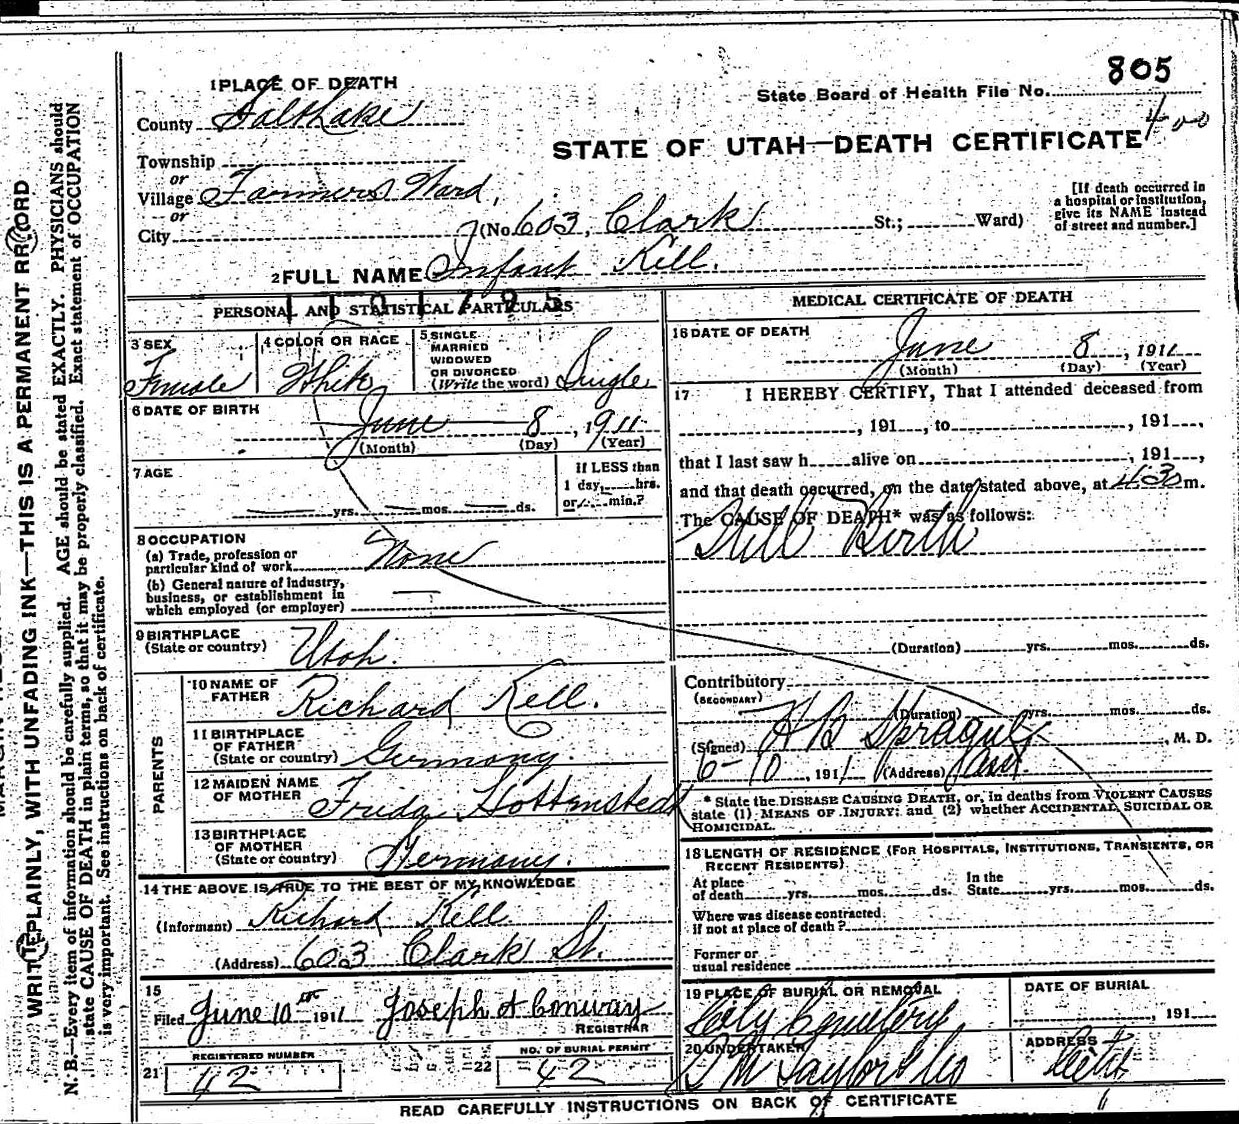 805
State Board of Health File No.
400
STATE OF UTAH—DEATH CERTIFICATE
1 PLACE OF DEATH
County Salt Lake
Township
or
Village Farmers Ward,
or
City (No. 603, Clark St.; Ward)
[If death occurred in
a hospital or institution,
give its NAME instead
of street and number.]
2 FULL NAME Infant Kell.
1101795
PERSONAL AND STATISTICAL PARTICULARS
3 SEX
Female
4 COLOR OR RACE
White
5 SINGLE
MARRIED
WIDOWED
OR DIVORCED
(Write the word) Single
6 DATE OF BIRTH
June 8, 1911
(Month) (Day) (Year)
7 AGE
If LESS than
1 day, hrs.
or min.?
yrs. mos. ds.
8 OCCUPATION
(a) Trade, profession or
particular kind of work None
(b) General nature of industry,
business, or establishment in
which employed (or employer)
9 BIRTHPLACE
(State or country) Utah.
PARENTS
10 NAME OF
FATHER Richard Kell.
11 BIRTHPLACE
OF FATHER
(State or country) Germany.
12 MAIDEN NAME
OF MOTHER Frida Hottenstedt
13 BIRTHPLACE
OF MOTHER
(State or country) Germany.
14 THE ABOVE IS TRUE TO THE BEST OF MY KNOWLEDGE
(Informant) Richard Kell
(Address) 603 Clark St.
15
Filed June 10th 1911 Joseph H Conway
REGISTRAR
REGISTERED NUMBER
21 42
NO. OF BURIAL PERMIT
22 42
MEDICAL CERTIFICATE OF DEATH
16 DATE OF DEATH
June 8, 1911
(Month) (Day) (Year)
17 I HEREBY CERTIFY, That I attended deceased from
, 191 , to , 191 ,
that I last saw h alive on , 191 ,
and that death occurred, on the date stated above, at 4.30 m.
The CAUSE OF DEATH* was as follows:
Still Birth
(Duration) yrs. mos. ds.
Contributory
(SECONDARY)
(Duration) yrs. mos. ds.
(Signed) H B Sprague, M. D.
6-10, 1911 (Address)
* State the DISEASE CAUSING DEATH, or, in deaths from VIOLENT CAUSES
state (1) MEANS OF INJURY; and (2) whether ACCIDENTAL, SUICIDAL OR
HOMICIDAL.
18 LENGTH OF RESIDENCE (FOR HOSPITALS, INSTITUTIONS, TRANSIENTS, OR
RECENT RESIDENTS)
At place
of death yrs. mos. ds.
In the
State yrs. mos. ds.
Where was disease contracted
if not at place of death?
Former or
usual residence
19 PLACE OF BURIAL OR REMOVAL
City Cemetery
DATE OF BURIAL
, 191
20 UNDERTAKER
S M Taylor & Co
ADDRESS
City
READ CAREFULLY INSTRUCTIONS ON BACK OF CERTIFICATE
WRITE PLAINLY, WITH UNFADING INK—THIS IS A PERMANENT RECORD
N. B.—Every item of information should be carefully supplied. AGE should be stated EXACTLY. PHYSICIANS should
state CAUSE OF DEATH in plain terms, so that it may be properly classified. Exact statement of OCCUPATION
is very important. See instructions on back of certificate.